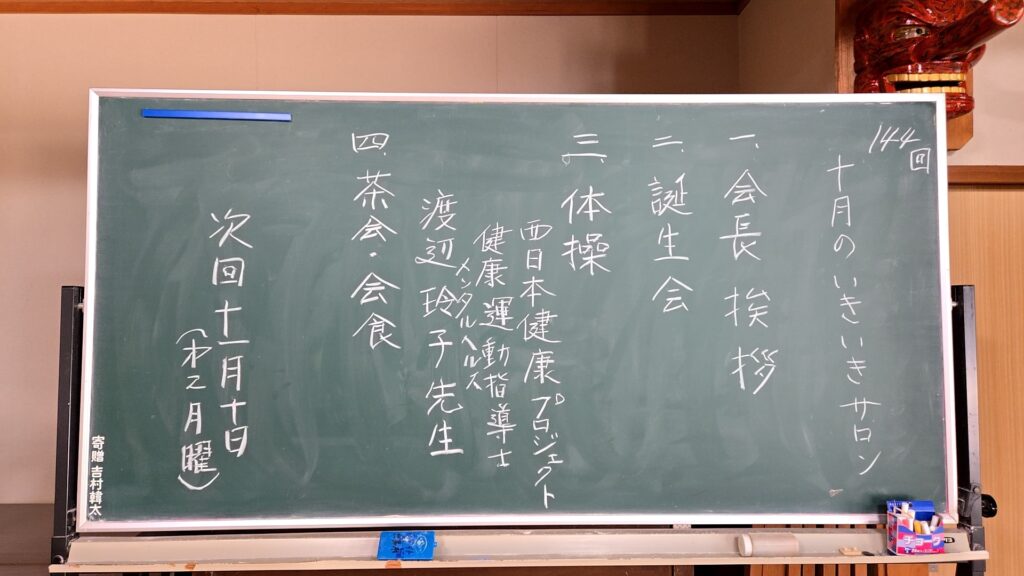 144回
十月のいきいきサロン
一、会長挨拶
二、誕生会
三、体操
西日本健康プロジェクト
健康運動指導士
メンタルヘルス
渡辺玲子先生
四、茶会・会食
次回十一月十日
(㐧二月曜)
寄贈 吉村輔太
チョーク